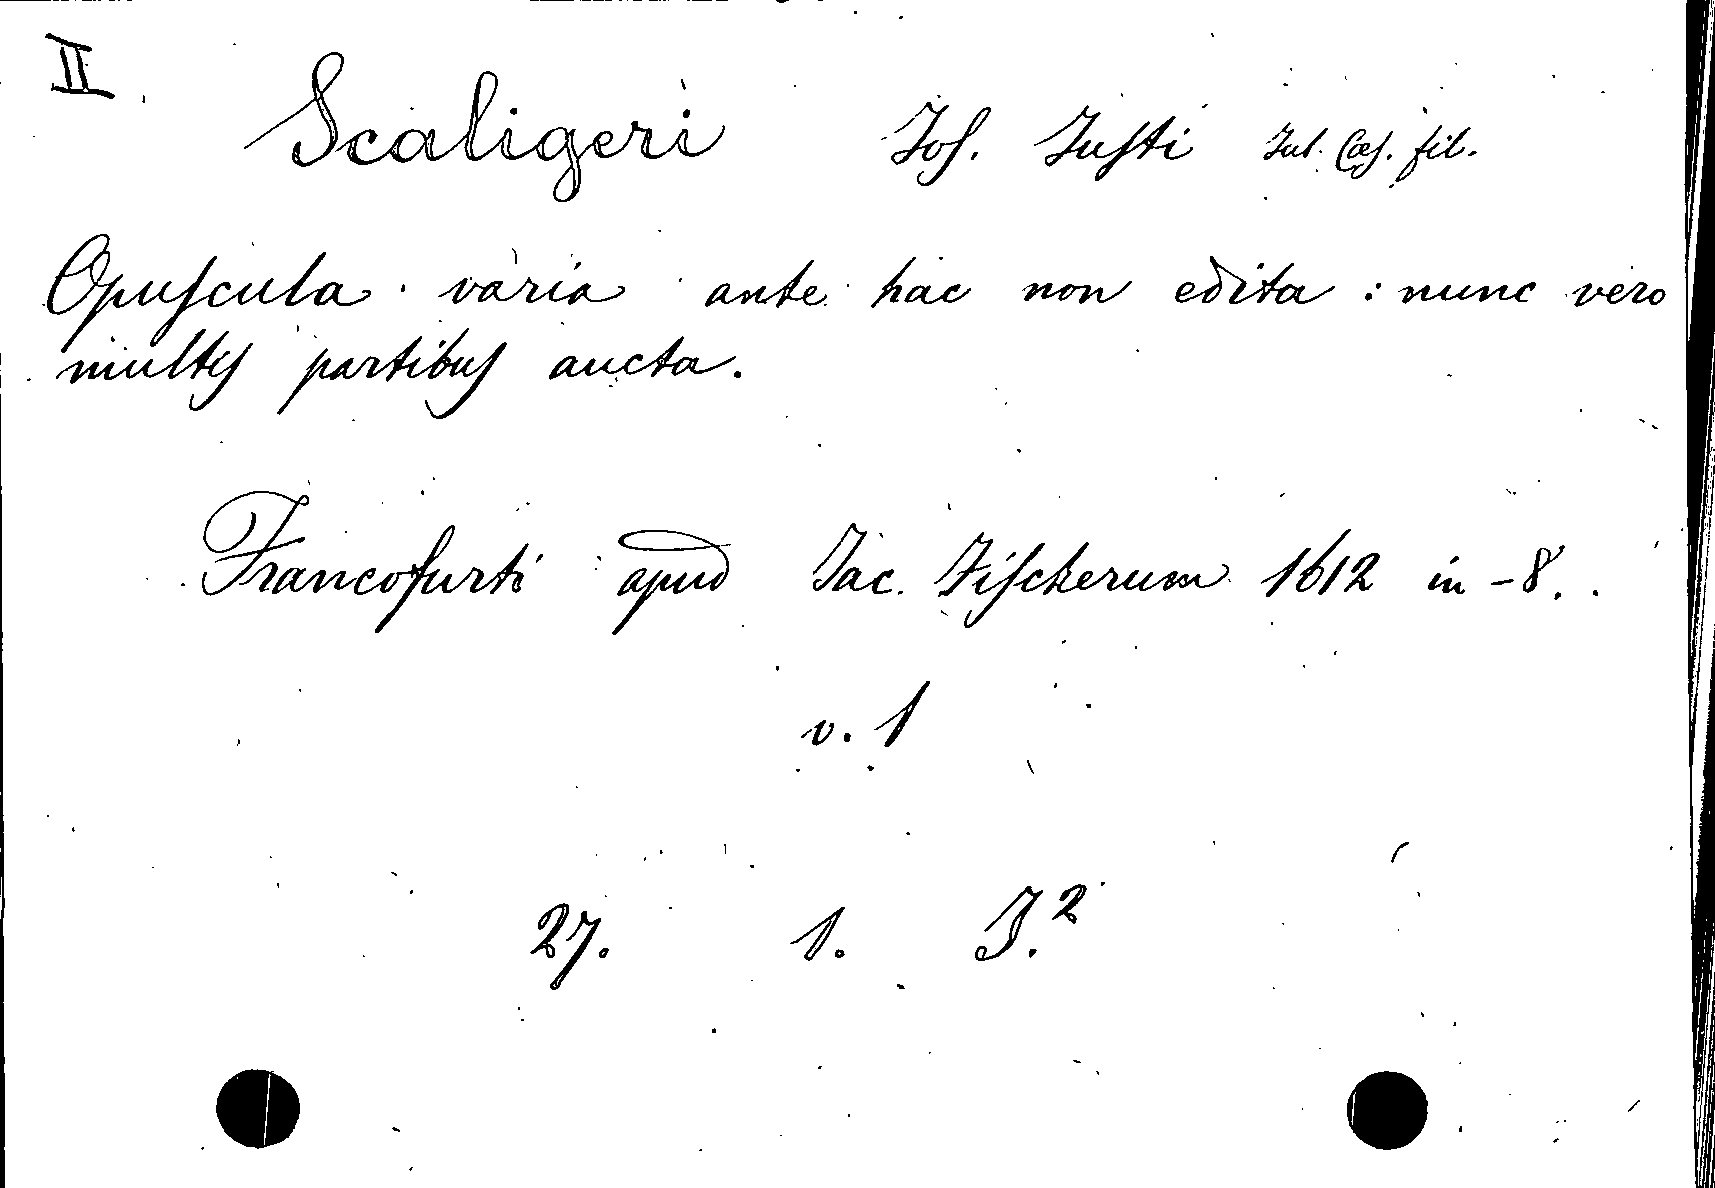 II
Scaligeri Jos. Justi Jul. Cæs. fil.
Opuscula varia ante hac non edita : nunc vero
multis partibus aucta.
Francofurti apud Jac. Fischerum 1612 in -8.
v. 1
27. 1. J.²